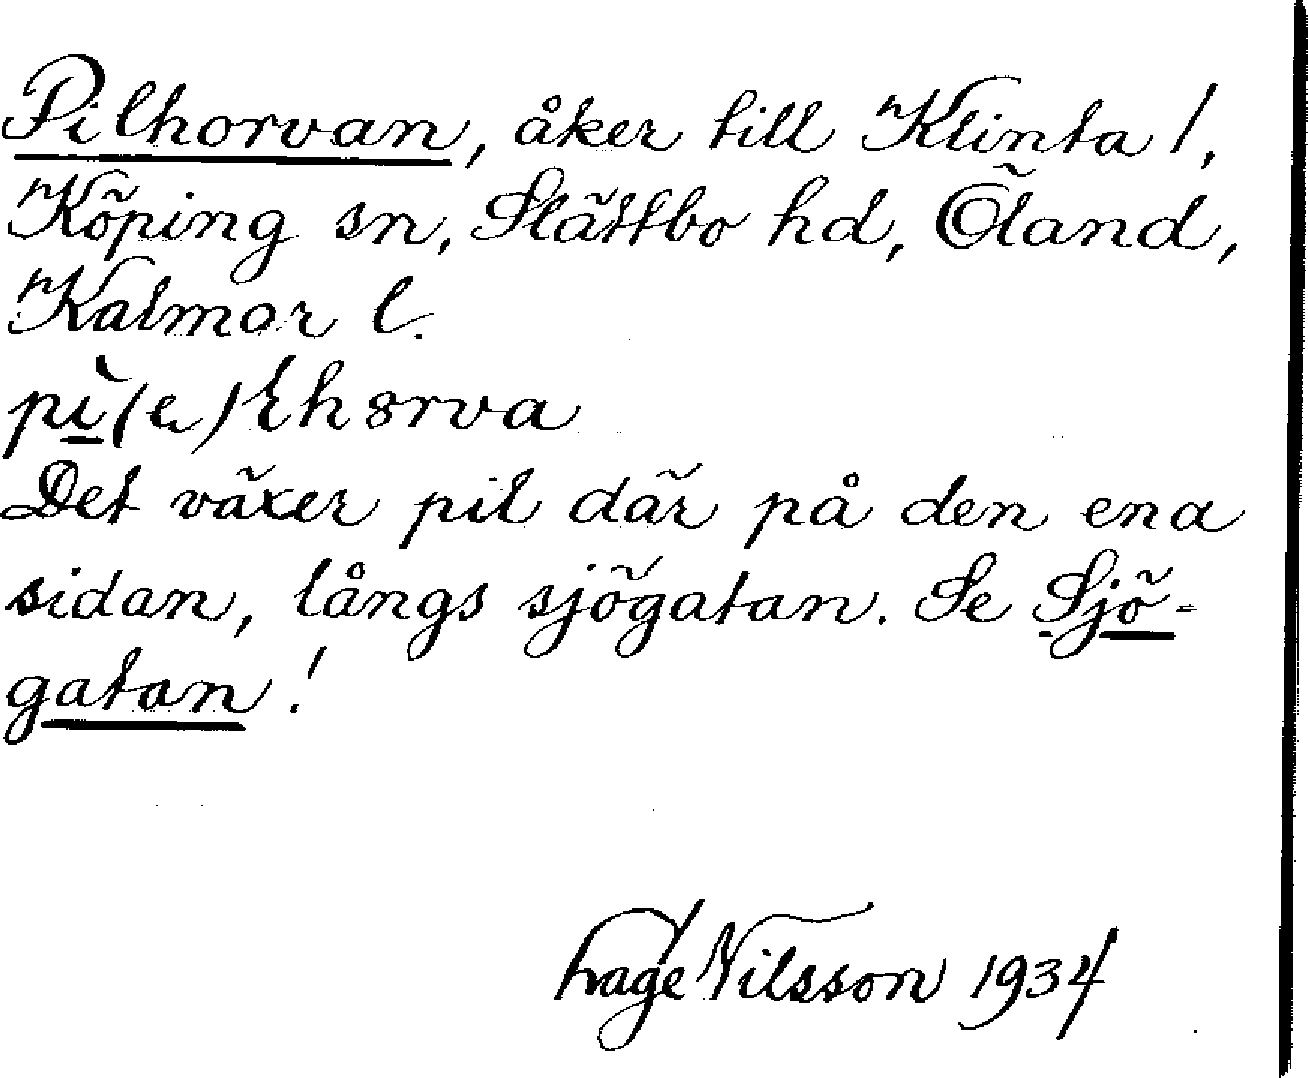 Pilhorvan, åker till Klinta 1,
Köping sn, Slättbo hd, Öland,
Kalmar l.
pì(e)lh8rva
Det växer pil där på den ena
sidan, långs sjögatan. Se Sjö-
gatan!
Nilsson 1934